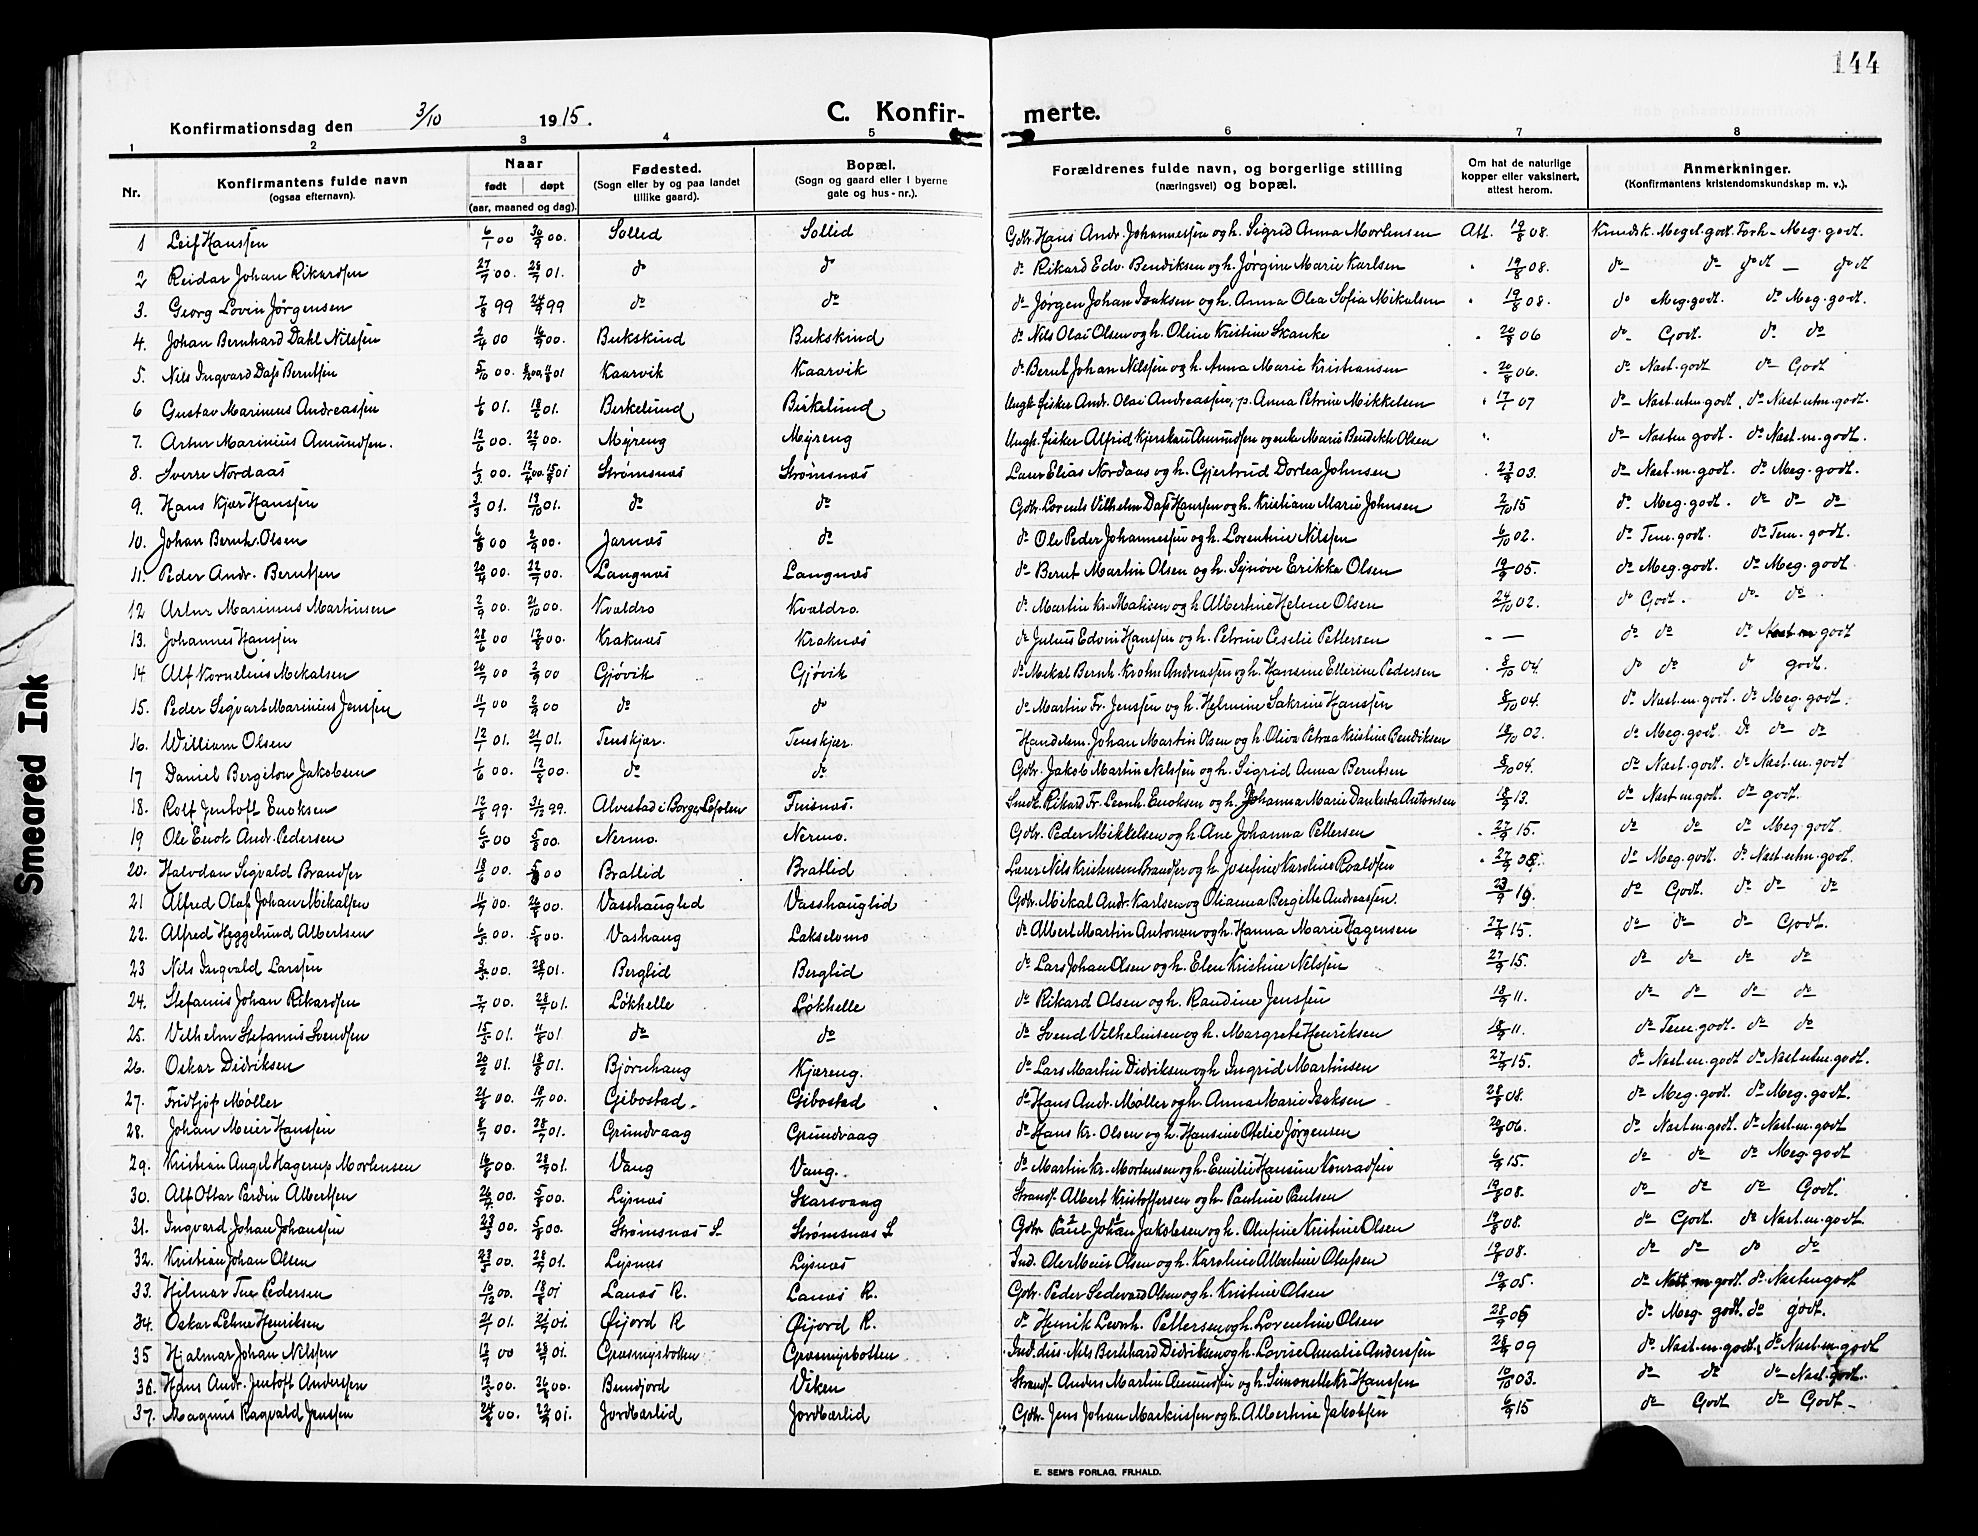 144
Konfirmationsdag den 3/10 1915.
C. Konfir- merte.
1 2 3 4 5 6 7 8
Nr. Konfirmantens fulde navn (ogsaa efternavn). Naar født døpt (aar, maaned og dag). Fødested. (Sogn eller by og paa landet tillike gaard). Bopæl. (Sogn og gaard eller i byerne gate og hus-nr.). Forældrenes fulde navn, og borgerlige stilling (næringsvei) og bopæl. Om hat de naturlige kopper eller vaksinert, attest herom. Anmerkninger. (Konfirmantens kristendomskundskap m. v.).
1 Leif Hanssen 6/1 00 30/9 00. Sollid Sollid Gdbr. Hans Andr. Johannessen og h. Sigrid Anna Mortensen Att. 19/8 08. Kundsk. Meget godt. Forh. Meg. godt.
2 Reidar Johan Rikardsen 27/7 00. 28/7 01. do do do Rikard Edv. Bendiksen og h. Jørgine Marie Karlsen 19/8 08. do do godt — godt
3. Georg Lovin Jørgensen 7/8 99 24/9 99 do do do Jørgen Johan Isaksen og h. Anna Olea Sofia Mikalsen 19/8 08. do Meg. godt. do Meg. godt.
4. Johan Bernhard Dahl Nilssen 2/4 00 16/9 00. Bukskind Bukskind do Nils Olai Olsen og h. Oline Kristine Skanke 20/8 06 do Godt. do do
5. Nils Ingvard Dass Berntsen 5/10 00. Kaarvik Kaarvik do Bernt Johan Nilssen og h. Anna Marie Kristiansen 20/8 06. do Næst. godt do Godt
6 Gustav Marinius Andreassen 1/6 01. 18/8 01. Birkelund Birkelund Ungk. fisker Andr. Olai Andreassen, p. Anna Petrine Mikkelsen 17/7 07 do Næst. utm. godt. do Næst utm. godt.
7. Artur Marinius Amundsen. 12/6 00. 22/7 00. Myreng Myreng Ungk. fisker Alfrid Kjerskau Amundsen og enke Marie Bendikte Olsen do Næst m godt. do Næst. m. godt.
8. Sverre Nordaas 1/3 00. Strømsnæs Strømsnæs Lærer Elias Nordaas og h. Gjertrud Dorlea Johnsen 23/9 03. do Næst. m. godt. do Meg. godt.
9. Hans Kjær Hanssen 3/3 01. 13/10 01. do do Gdbr. Lorents Vilhelm Dass Hanssen og h. Kristiane Marie Johnsen 2/10 15 do Meg. godt. do do do
10. Johan Bernh. Olsen 6/8 00 2/9 00. Jarnæs do do Ole Peder Johannessen og h. Lorentine Nilssen 6/10 02. do Tem. godt. do Tem. godt.
11. Peder Andr. Berntsen 20/4 00. 22/7 00. Langnæs Langnæs do Bernt Martin Olsen og h. Synøve Erikke Olsen 19/9 05. do Meg. godt do Meg. godt
12 Artur Marinius Martinsen 2/9 00. 21/10 00. Kvaldro Kvaldro. do Martin Kr. Matisen og h. Albertine Helene Olsen 24/10 02. do Godt. do do
13. Johannes Hanssen 28/6 00 12/8 00. Kraknæs Kraknæs do Julius Edvin Hanssen og h. Petrine Ceselie Pettersen — do do do godt
14 Alf Kornelius Mekalsen 26/7 00 2/9 00 Gjøvik Gjøvik do Mekal Bernh. Krohn Andreassen og h. Hansine Ellerine Pedersen 8/10 04. do do do godt.
15. Peder Sigvart Marinius Jenssen 11/7 00 2/9 00 do do do Martin Fr. Jenssen og h. Helmine Sakrine Hanssen 8/10 04. do Næst. m. godt. do Meg. godt.
16. William Olsen 12/1 01. 21/7 01. Tenskjær. Tenskjær. Handelsm. Johan Martin Olsen og h. Oliva Petrea Kristine Bendiksen 18/10 02. do Meg. godt. Do do do
17 Daniel Bergiton Jakobsen 1/6 00. 12/8 00. do do Gdbr. Jakob Martin Nilssen og h. Sigrid Anna Berntsen 8/10 04. do Næst. godt. do Næst. m. godt
18. Rolf Jentoft Enoksen 12/8 99. 31/12 99. Alvestad i Borge, Lofoten Finsnæs. Smed. Rikard Fr. Leonh. Enoksen og h. Johanna Marie Antonsen 18/9 13. do Næst m. godt. do godt.
19 Ole Enok Andr. Pedersen 6/5 00 5/8 00. Nermo. Nermo. Gdbr. Peder Mikkelsen og h. Ane Johanna Pettersen 27/9 15. do do do Meg. godt.
20. Halvdan Sigvald Brandser 18/6 00. 5/8 00 Bratlid Bratlid Lærer Nils Kristensen Brandser og h. Josefine Karoline Roaldsen 27/9 08. do Meg. godt. do Næst. utm. godt.
21 Alfred Olaf Johan Mikalsen 4/7 00. 26/8 00. Vasshauglid Vasshauglid Gdbr. Mekal Andr. Karlsen og Olianna Bergitte Andreassen. do Godt. do do do
22. Alfred Heggelund Albertsen 6/5 00. 5/8 00. Vashaug Lakselvmo do Albert Martin Antonsen og h. Hanna Marie Hagensen 27/9 15. do do do Godt.
23 Nils Ingvald Larssen 3/5 00. 28/7 01. Berglid Berglid do Lars Johan Olsen og h. Elen Kristine Nilssen 27/9 15. do do do do
24. Stefanus Johan Rikardsen 7/7 00. 28/7 01. Løkhelle Løkhelle do Rikard Olsen og h. Randine Jenssen 18/9 11. do do do do
25. Vilhelm Stefanus Svendsen 15/5 01. 11/8 01 do do do Svend Vilhelmsen og h. Margrete Henriksen 18/9 11. do Tem. godt. do do
26. Oskar Didriksen 20/2 01. 18/8 01. Bjørnhaug Kjæreng. do Lars Martin Didriksen og h. Ingrid Martinsen 27/9 15. do Næst. m. godt do Næst utm. godt.
27. Fridtjof Møller 21/8 00. 18/11 00. Gibostad. Gibostad do Hans Andr. Møller og h. Anna Marie Isaksen 28/8 08. do Meg. godt. do Meg. godt.
28. Johan Meier Hanssen 8/7 00. 28/7 01. Grundvaag Grundvaag do Hans Kr. Olsen og h. Hansine Otelie Jørgensen 20/8 06. do Næst. m. godt. do Næst. m. godt
29. Kristian Angel Hagerup Mortensen 16/8 00. 28/7 01. Vang Vang. do Martin Kr. Mortensen og h. Emilie Hansine Konradsen 6/9 15. do do do Meg. godt
30. Alf Ottar Pardin Albertsen 26/4 00. 5/8 00. Lysnæs Skarsvaag Strands. Albert Kristoffersen og h. Pauline Paulsen 19/8 08. do do do Godt.
31. Ingvard Johan Johanssen 23/3 00. 5/8 00. Strømsnæs L. Strømsnæs L Gdbr. Paul Johan Jakobsen og h. Olufine Kristine Olsen 19/8 08. do Godt. do Næst. m. godt.
32. Kristian Johan Olsen 23/5 00. 28/7 01. Lysnæs Lysnæs Ind. Ole Meier Olsen og h. Karoline Albertine Olufsen 19/8 08. do do do do
33. Hilmar Pedersen 10/12 00. 18/8 01 Lanæs R. Lanæs R. Gdbr. Peder Sedevard Olsen og h. Kristine Olsen 19/9 05. do Næst m godt. do Næst m godt
34. Oskar Lehne Henriksen 21/1 01. 21/7 01. Øijord R Øijord R. do Henrik Leonh. Pettersen og h. Lorentine Olsen do Meg. godt. do godt.
35 Hjalmar Johan Nilssen 12/7 00 28/7 01. Græsmyrbotten Græsmyrbotten Ind. Nils Bernhard Didriksen og h. Lovise Amalie Anderssen 28/9 09 do Næst. m. godt. do Næst. m. godt
36. Hans Andr. Jentoft Anderssen 12/5 00. 26/8 00. Bunnjord Viken Strands. Anders Martin Amundsen og h. Simonette Kr. Hanssen 10/10 03. do do do Næst. godt.
37. Magnus Ragvald Jenssen 24/8 00. 22/9 01. Jordbærlid Jordbærlid Gdbr. Jens Johan Markussen og h. Albertine Jakobsen 6/9 15 do Godt do Godt
E. SEM'S FORLAG, FR.HALD.
Smeared Ink